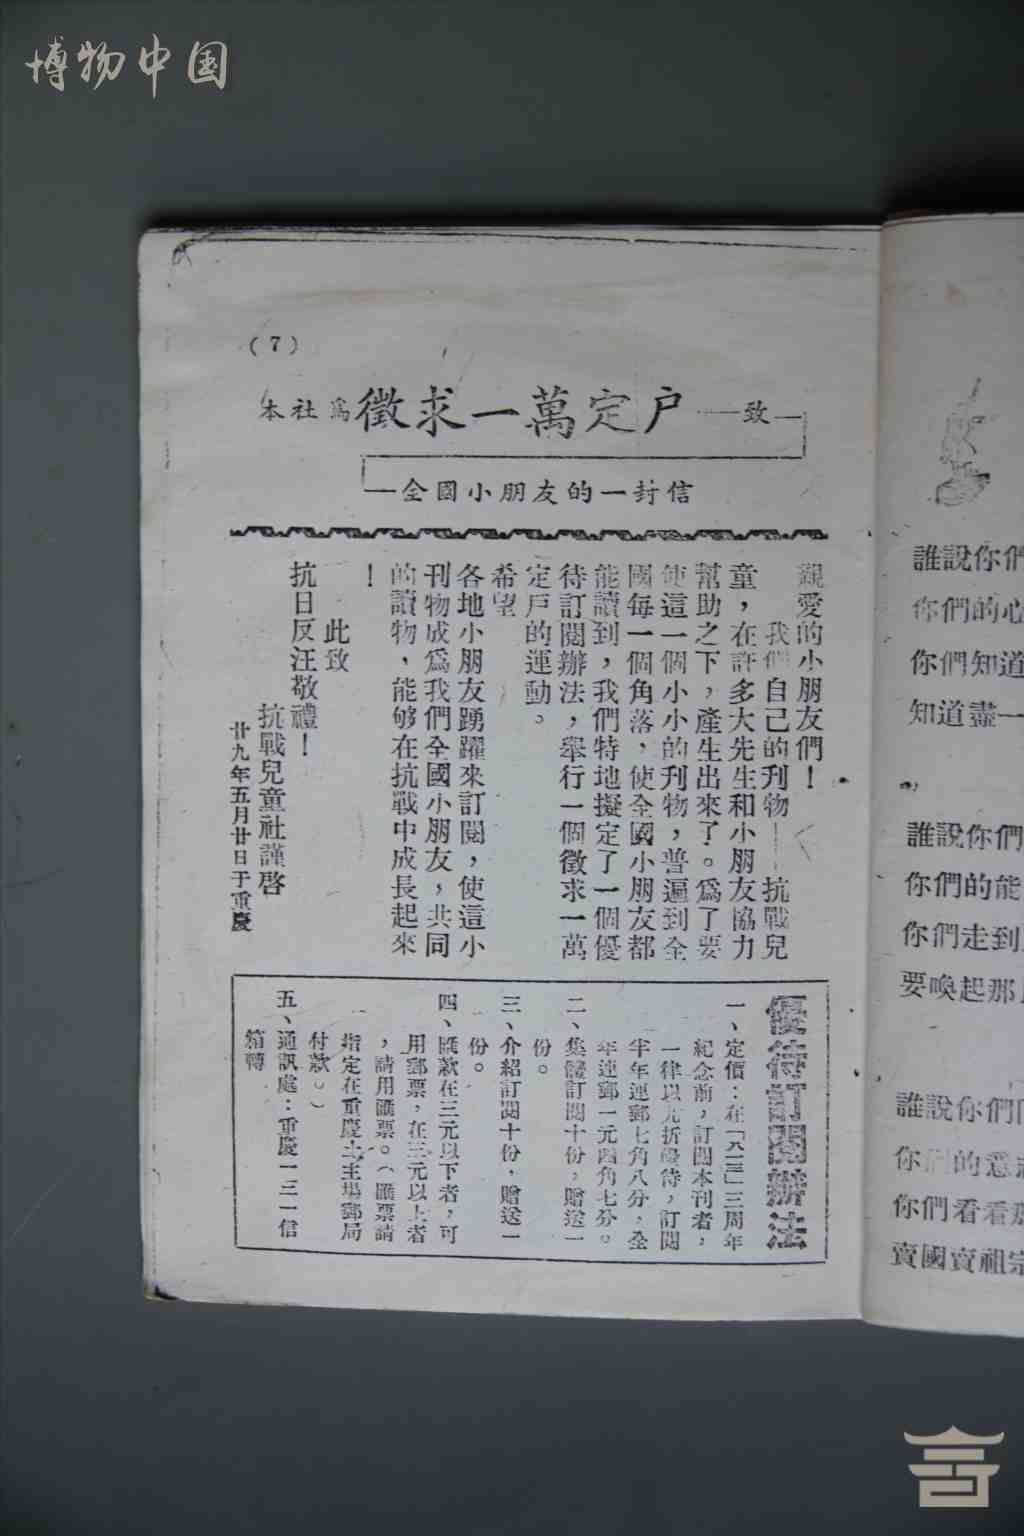 博物中国
(7)
本社爲徵求一萬定戶——致
全國小朋友的一封信
親愛的小朋友們！
我們自己的刋物——抗戰兒
童，在許多大先生和小朋友協力
幫助之下，產生出來了。爲了要
使這一個小小的刋物，普遍到全
國每一個角落，使全國小朋友都
能讀到，我們特地擬定了一個優
待訂閱辦法，舉行一個徵求一萬
定戶的運動。
希望
各地小朋友踴躍來訂閱，使這小
刋物成爲我們全國小朋友，共同
的讀物，能够在抗戰中成長起來
！
此致
抗日反汪敬禮！
抗戰兒童社謹啓
廿九年五月廿日于重慶
優待訂閱辦法
一、定價：在「八一三」三周年
紀念前，訂閱本刊者，
一律以九折優待，訂閱
半年連郵七角八分，全
年連郵一元四角七分。
二、集體訂閱十份，贈送一
份。
三、介紹訂閱十份，贈送一
份。
四、匯款在三元以下者，可
用郵票，在三元以上者
，請用匯票。（匯票請
指定在重慶土主場郵局
付款。）
五、通訊處：重慶一三一信
箱轉
誰說你們
你們的心
你們知道
知道盡一
誰說你們
你們的能
你們走到
要喚起那
誰說你們
你們的意志
你們看看
賣國賣祖宗